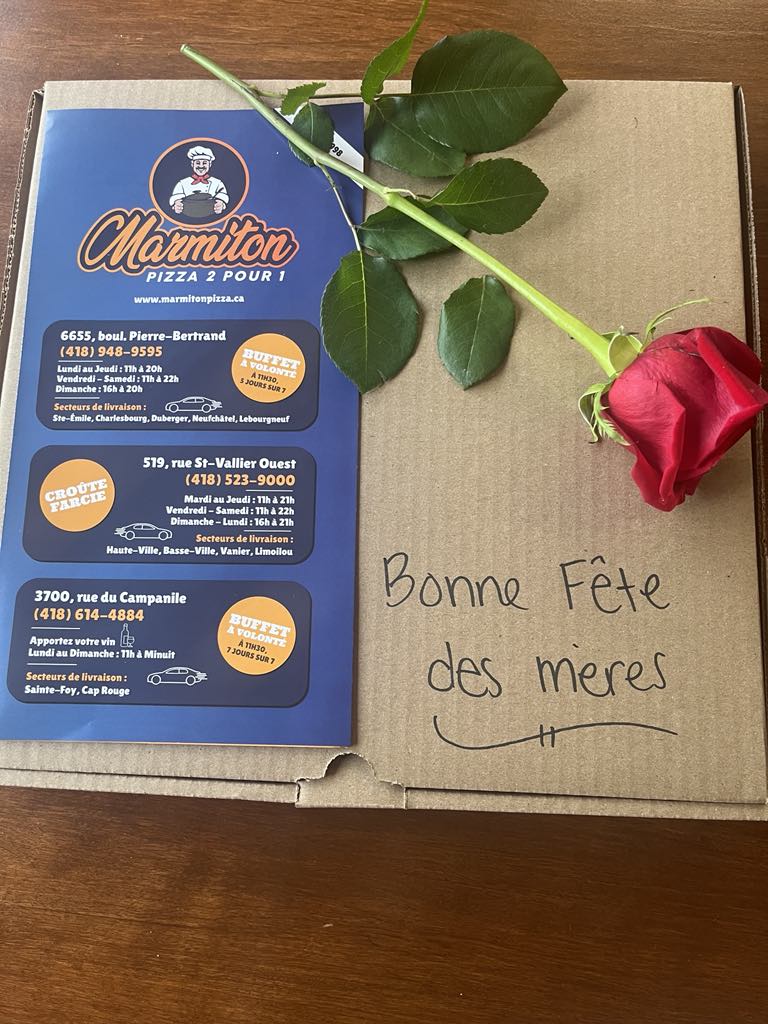 998
Marmiton
PIZZA 2 POUR 1
www.marmitonpizza.ca
6655, boul. Pierre-Bertrand
(418) 948-9595
Lundi au Jeudi : 11h à 20h
Vendredi - Samedi : 11h à 22h
Dimanche : 16h à 20h
Secteurs de livraison :
Ste-Émile, Charlesbourg, Duberger, Neufchâtel, Lebourgneuf
BUFFET
À VOLONTÉ
À 11H30,
5 JOURS SUR 7
CROÛTE
FARCIE
519, rue St-Vallier Ouest
(418) 523-9000
Mardi au Jeudi : 11h à 21h
Vendredi - Samedi : 11h à 22h
Dimanche - Lundi : 16h à 21h
Secteurs de livraison :
Haute-Ville, Basse-Ville, Vanier, Limoilou
3700, rue du Campanile
(418) 614-4884
Apportez votre vin
Lundi au Dimanche : 11h à Minuit
Secteurs de livraison :
Sainte-Foy, Cap Rouge
BUFFET
À VOLONTÉ
À 11H30,
7 JOURS SUR 7
Bonne Fête
des mères